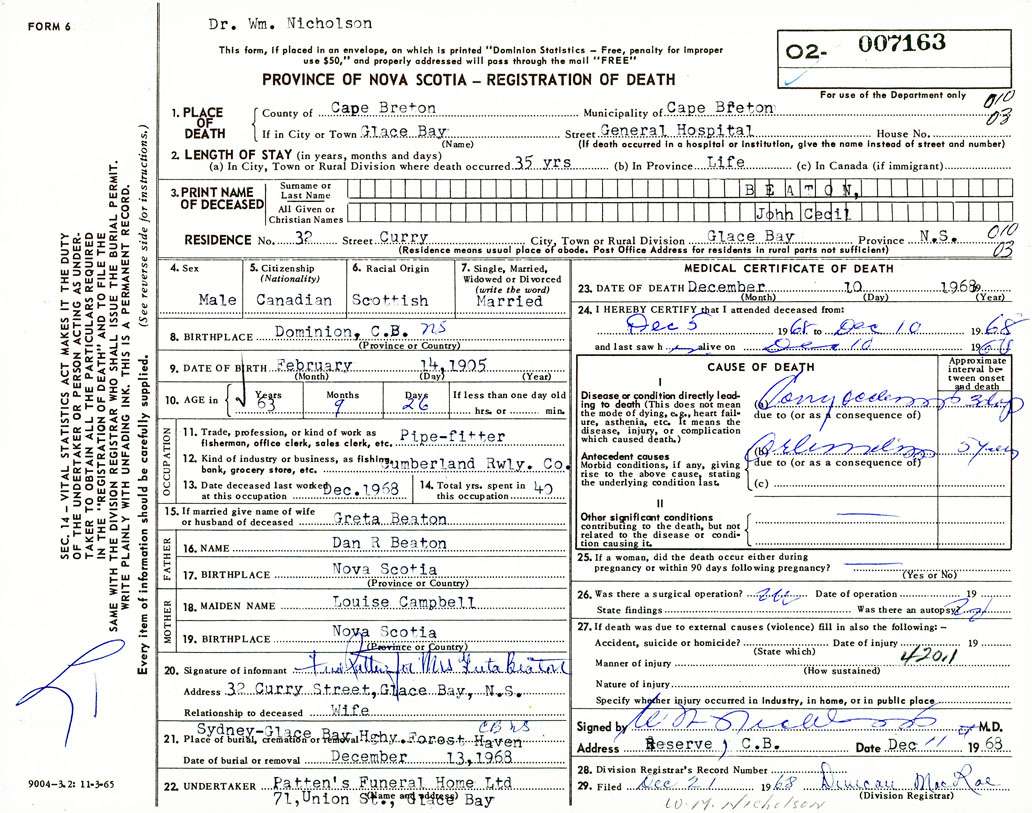 FORM 6
Dr. Wm. Nicholson
This form, if placed in an envelope, on which is printed "Dominion Statistics – Free, penalty for improper
use $50," and properly addressed will pass through the mail "FREE"
PROVINCE OF NOVA SCOTIA – REGISTRATION OF DEATH
O2- 007163
For use of the Department only
010
03
1. PLACE OF DEATH
County of Cape Breton Municipality of Cape Breton
If in City or Town Glace Bay Street General Hospital House No.
(Name) (If death occurred in a hospital or institution, give the name instead of street and number)
2. LENGTH OF STAY (in years, months and days)
(a) In City, Town or Rural Division where death occurred 35 yrs (b) In Province Life (c) In Canada (if immigrant)
3. PRINT NAME OF DECEASED
Surname or Last Name BEATON,
All Given or Christian Names John Cecil
RESIDENCE No. 32 Street Curry City, Town or Rural Division Glace Bay Province N.S.
(Residence means usual place of abode. Post Office Address for residents in rural parts not sufficient)
010
03
4. Sex
Male
5. Citizenship
(Nationality)
Canadian
6. Racial Origin
Scottish
7. Single, Married,
Widowed or Divorced
(write the word)
Married
8. BIRTHPLACE Dominion, C.B. NS
(Province or Country)
9. DATE OF BIRTH February 14,1905
(Month) (Day) (Year)
10. AGE in
Years Months Days If less than one day old
63 9 26 hrs. or min.
OCCUPATION
11. Trade, profession, or kind of work as
fisherman, office clerk, sales clerk, etc. Pipe-fitter
12. Kind of industry or business, as fishing,
bank, grocery store, etc. Cumberland Rwly. Co.
13. Date deceased last worked
at this occupation Dec.1968
14. Total yrs. spent in
this occupation 40
15. If married give name of wife
or husband of deceased Greta Beaton
FATHER
16. NAME Dan R Beaton
17. BIRTHPLACE Nova Scotia
(Province or Country)
MOTHER
18. MAIDEN NAME Louise Campbell
19. BIRTHPLACE Nova Scotia
(Province or Country)
20. Signature of informant for Mrs Greta Beaton
Address 32 Curry Street,Glace Bay, N.S.
Relationship to deceased Wife
CB NS
21. Place of burial, cremation or removal Sydney-Glace Bay Hghy.Forest Haven
Date of burial or removal December 13,1968
22. UNDERTAKER Patten's Funeral Home Ltd
(Name and address) 71,Union St., Glace Bay
MEDICAL CERTIFICATE OF DEATH
23. DATE OF DEATH December 10 1968
(Month) (Day) (Year)
24. I HEREBY CERTIFY that I attended deceased from:
Dec 5 1968 to Dec 10 1968
and last saw h alive on Dec 10 1968
CAUSE OF DEATH
Approximate
interval be-
tween onset
and death
I
Disease or condition directly lead-
ing to death (This does not mean
the mode of dying, e.g., heart fail-
ure, asthenia, etc. It means the
disease, injury, or complication
which caused death.)
(a)
due to (or as a consequence of)
Antecedent causes
Morbid conditions, if any, giving
rise to the above cause, stating
the underlying condition last.
(b) 5 years
due to (or as a consequence of)
(c)
II
Other significant conditions
contributing to the death, but not
related to the disease or condi-
tion causing it.
25. If a woman, did the death occur either during
pregnancy or within 90 days following pregnancy?
(Yes or No)
26. Was there a surgical operation? Date of operation 19
State findings Was there an autopsy?
27. If death was due to external causes (violence) fill in also the following: –
Accident, suicide or homicide? Date of injury 19
(State which)
420.1
Manner of injury
(How sustained)
Nature of injury
Specify whether injury occurred in Industry, in home, or in public place
Signed by M.D.
Address Reserve, C.B. Date Dec 11 1968
28. Division Registrar's Record Number
29. Filed Dec 21 1968 Duncan MacRae
(Division Registrar)
W.M. Nicholson
SEC. 14 – VITAL STATISTICS ACT MAKES IT THE DUTY
OF THE UNDERTAKER OR PERSON ACTING AS UNDER-
TAKER TO OBTAIN ALL THE PARTICULARS REQUIRED
IN THE "REGISTRATION OF DEATH" AND TO FILE THE
SAME WITH THE DIVISION REGISTRAR WHO SHALL ISSUE THE BURIAL PERMIT.
WRITE PLAINLY WITH UNFADING INK. THIS IS A PERMANENT RECORD.
Every item of information should be carefully supplied. (See reverse side for instructions.)
9004-3.2: 11-3-65